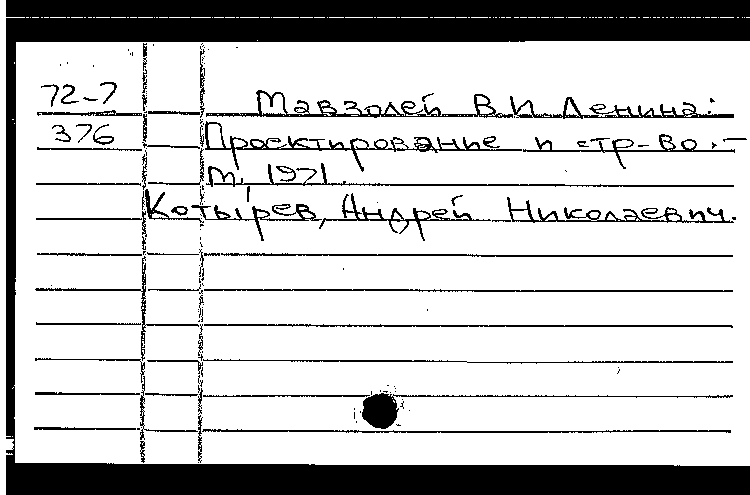 72-7 Мавзолей В.И Ленина:
376 Проектирование и стр-во.-
М., 1971.
Котырев, Андрей Николаевич.